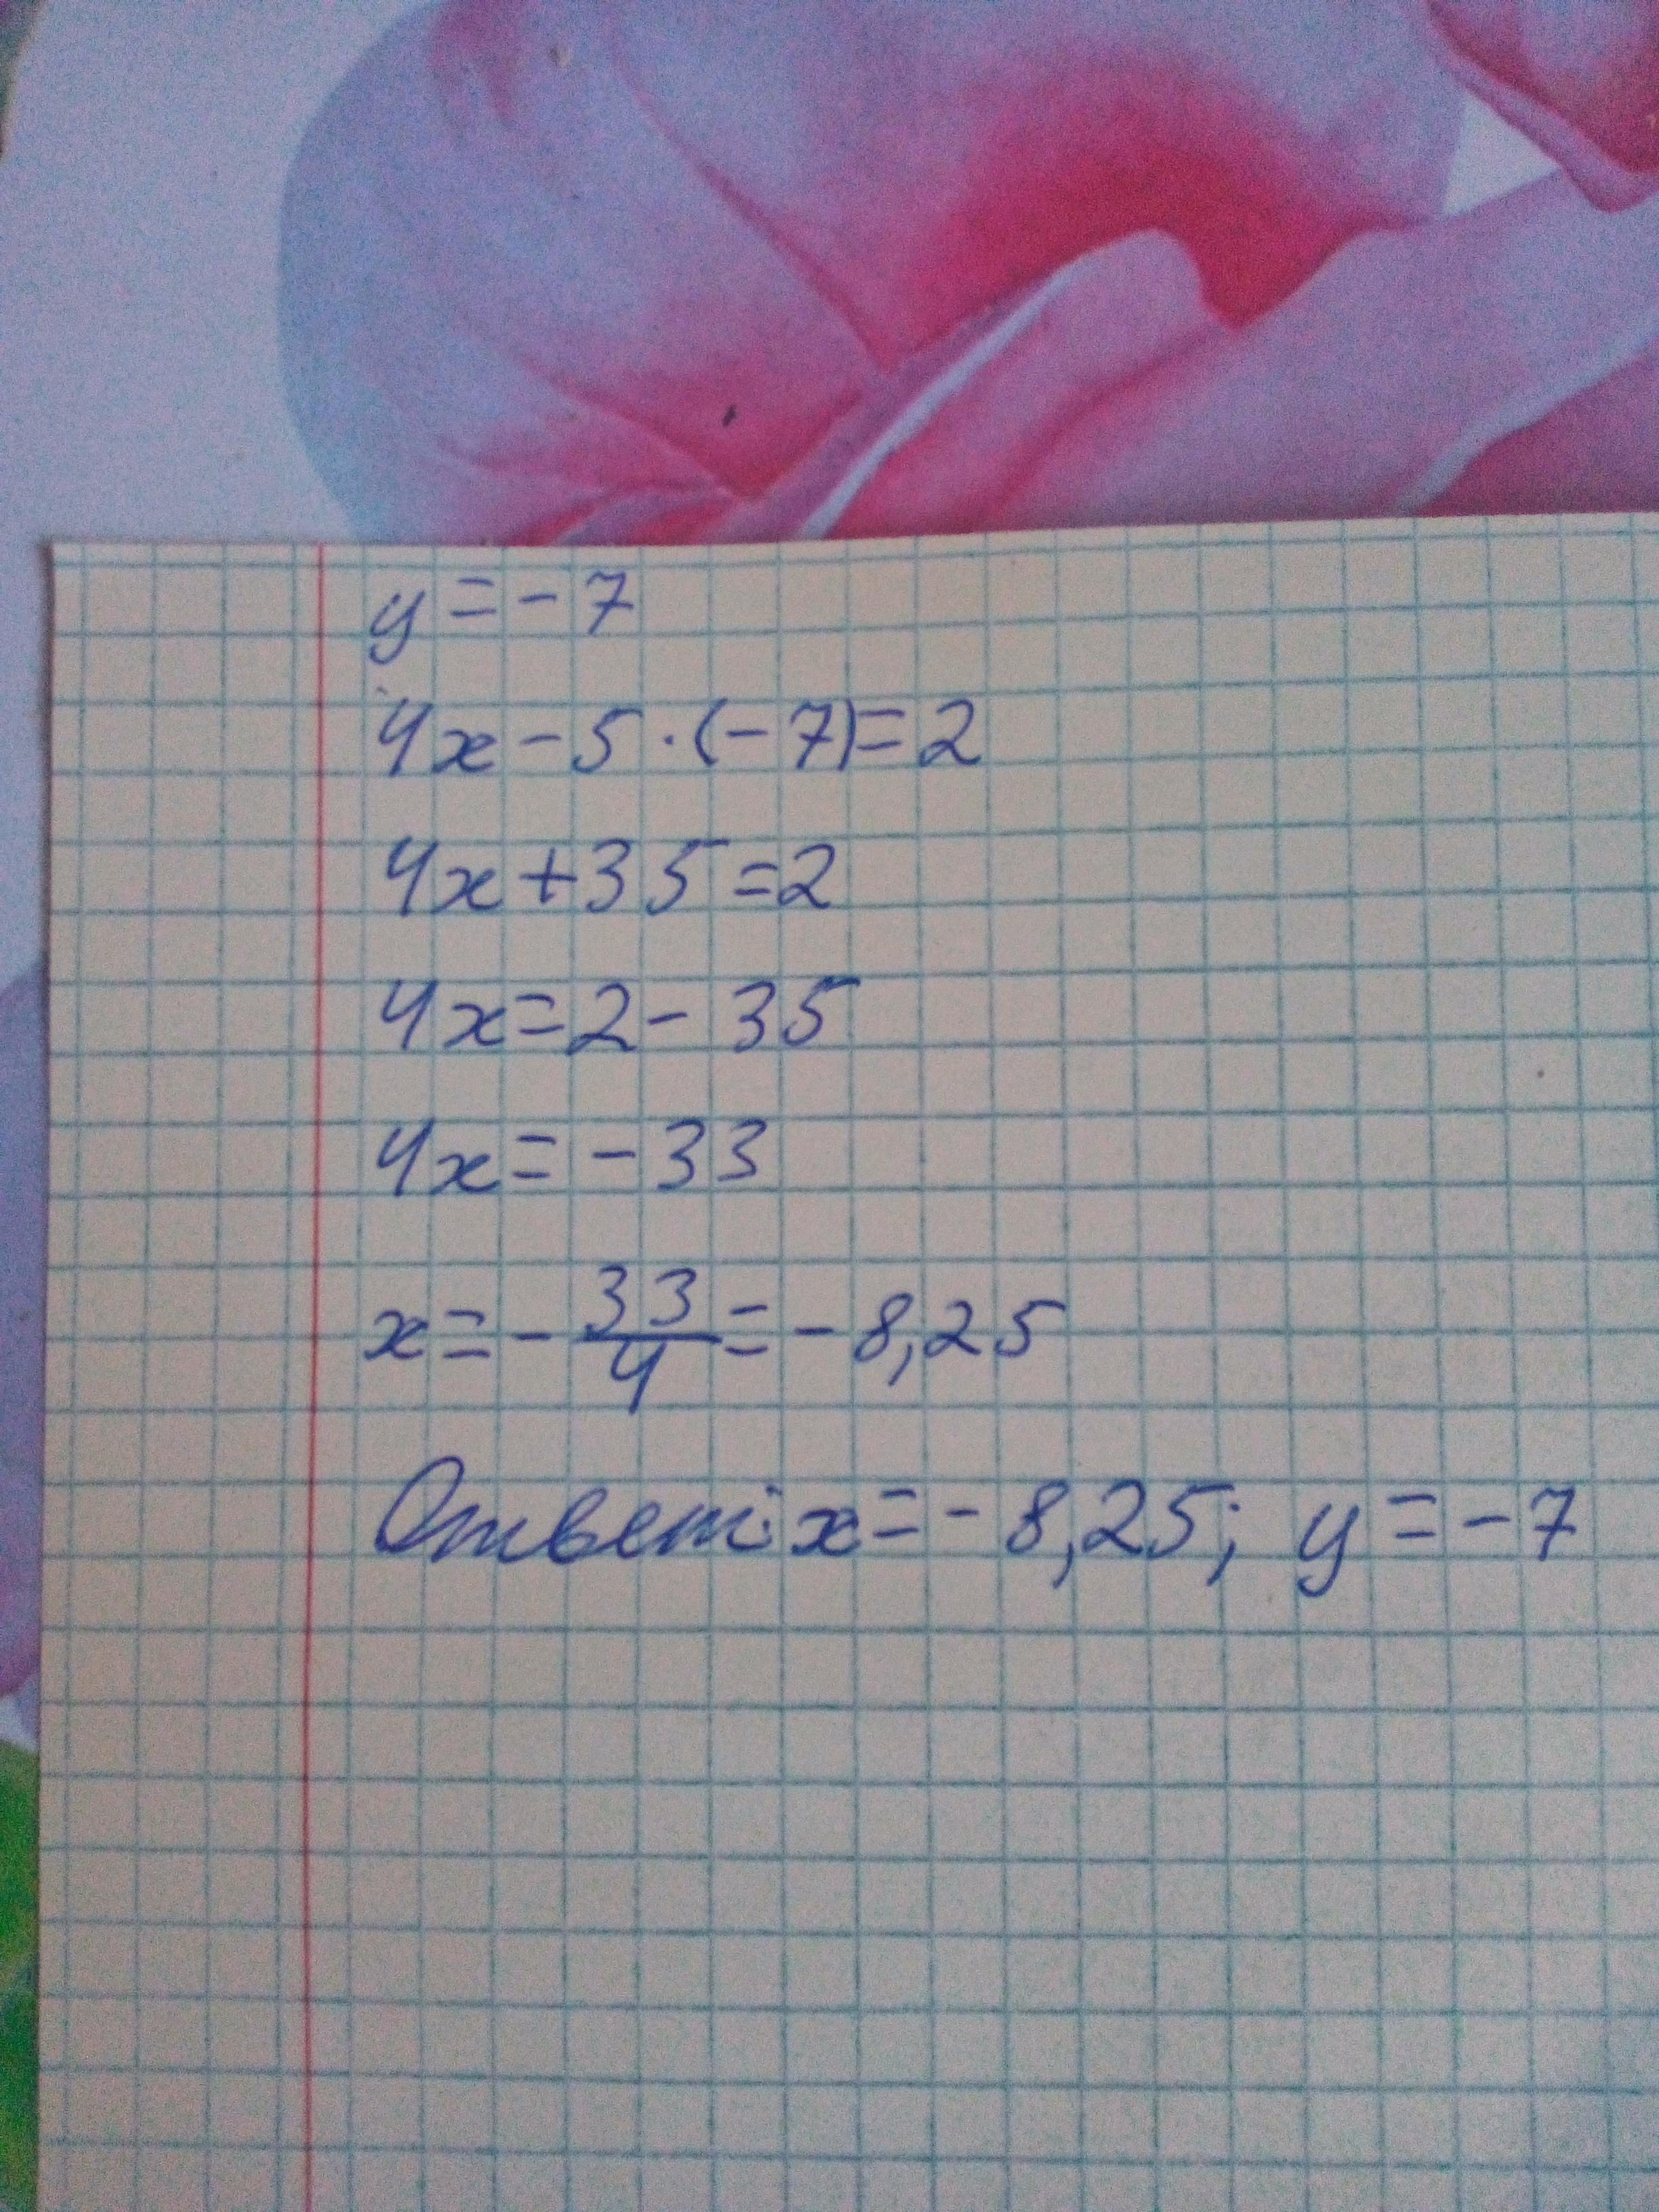 y = - 7
4x - 5 · (- 7) = 2
4x + 35 = 2
4x = 2 - 35
4x = - 33
x = - 33/4 = - 8,25
Ответ: x = - 8,25; y = - 7